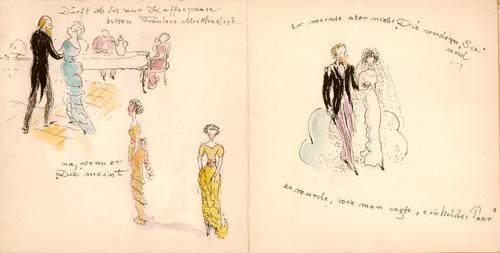 Dürft ich Sie zur Kaffeepause
bitten Fräulein
na, wenn er
Die meint
Er meinte aber nicht "Die" sondern "Sie"
und
es wurde, wie man sagte, ein holdes Paar